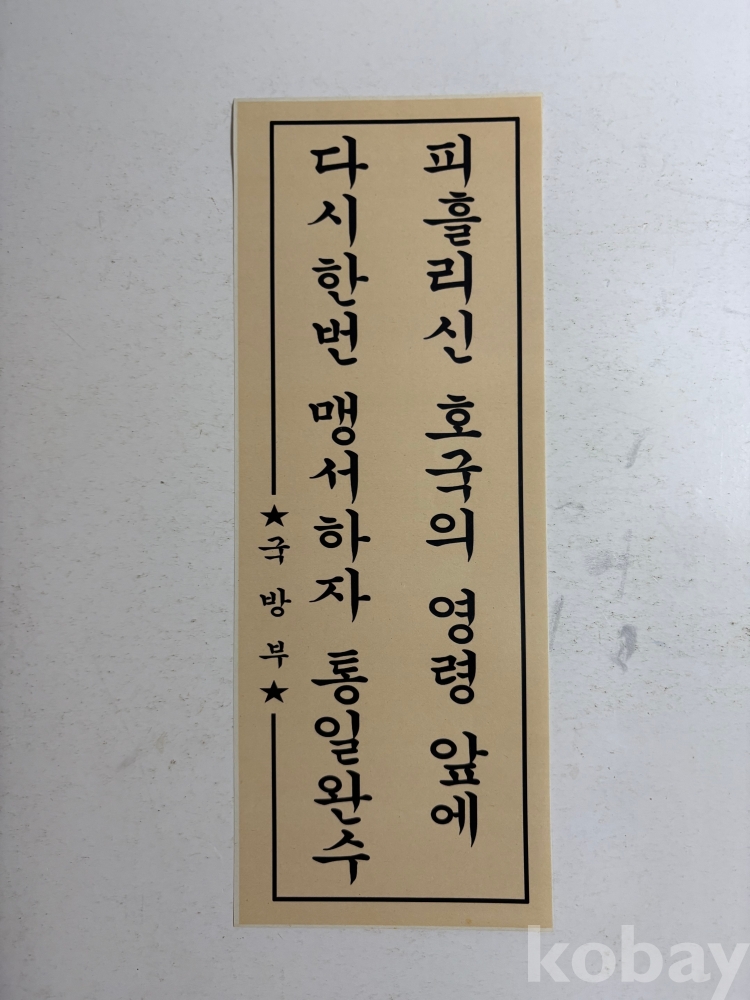 피흘리신 호국의 영령 앞에
다시한번 맹서하자 통일완수
★국방부★
kobay